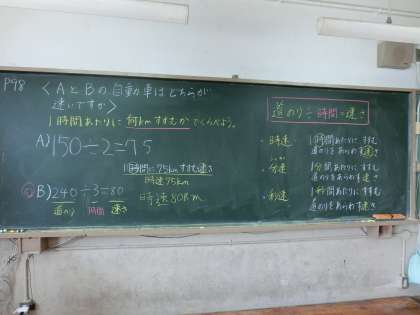 P98 〈AとBの自動車はどちらが
速いですか〉
1時間あたりに何kmすすむかでくらべよう。
A) 150÷2=75
1時間に75kmすすむ速さ
時速75km
B) 240÷3=80
道のり 時間 速さ
時速80km
道のり÷時間=速さ
・時速 1時間あたりにすすむ
道のりをあらわす速さ
・分速 1分間あたりにすすむ
道のりをあらわす速さ
・秒速 1秒間あたりにすすむ
道のりをあらわす速さ